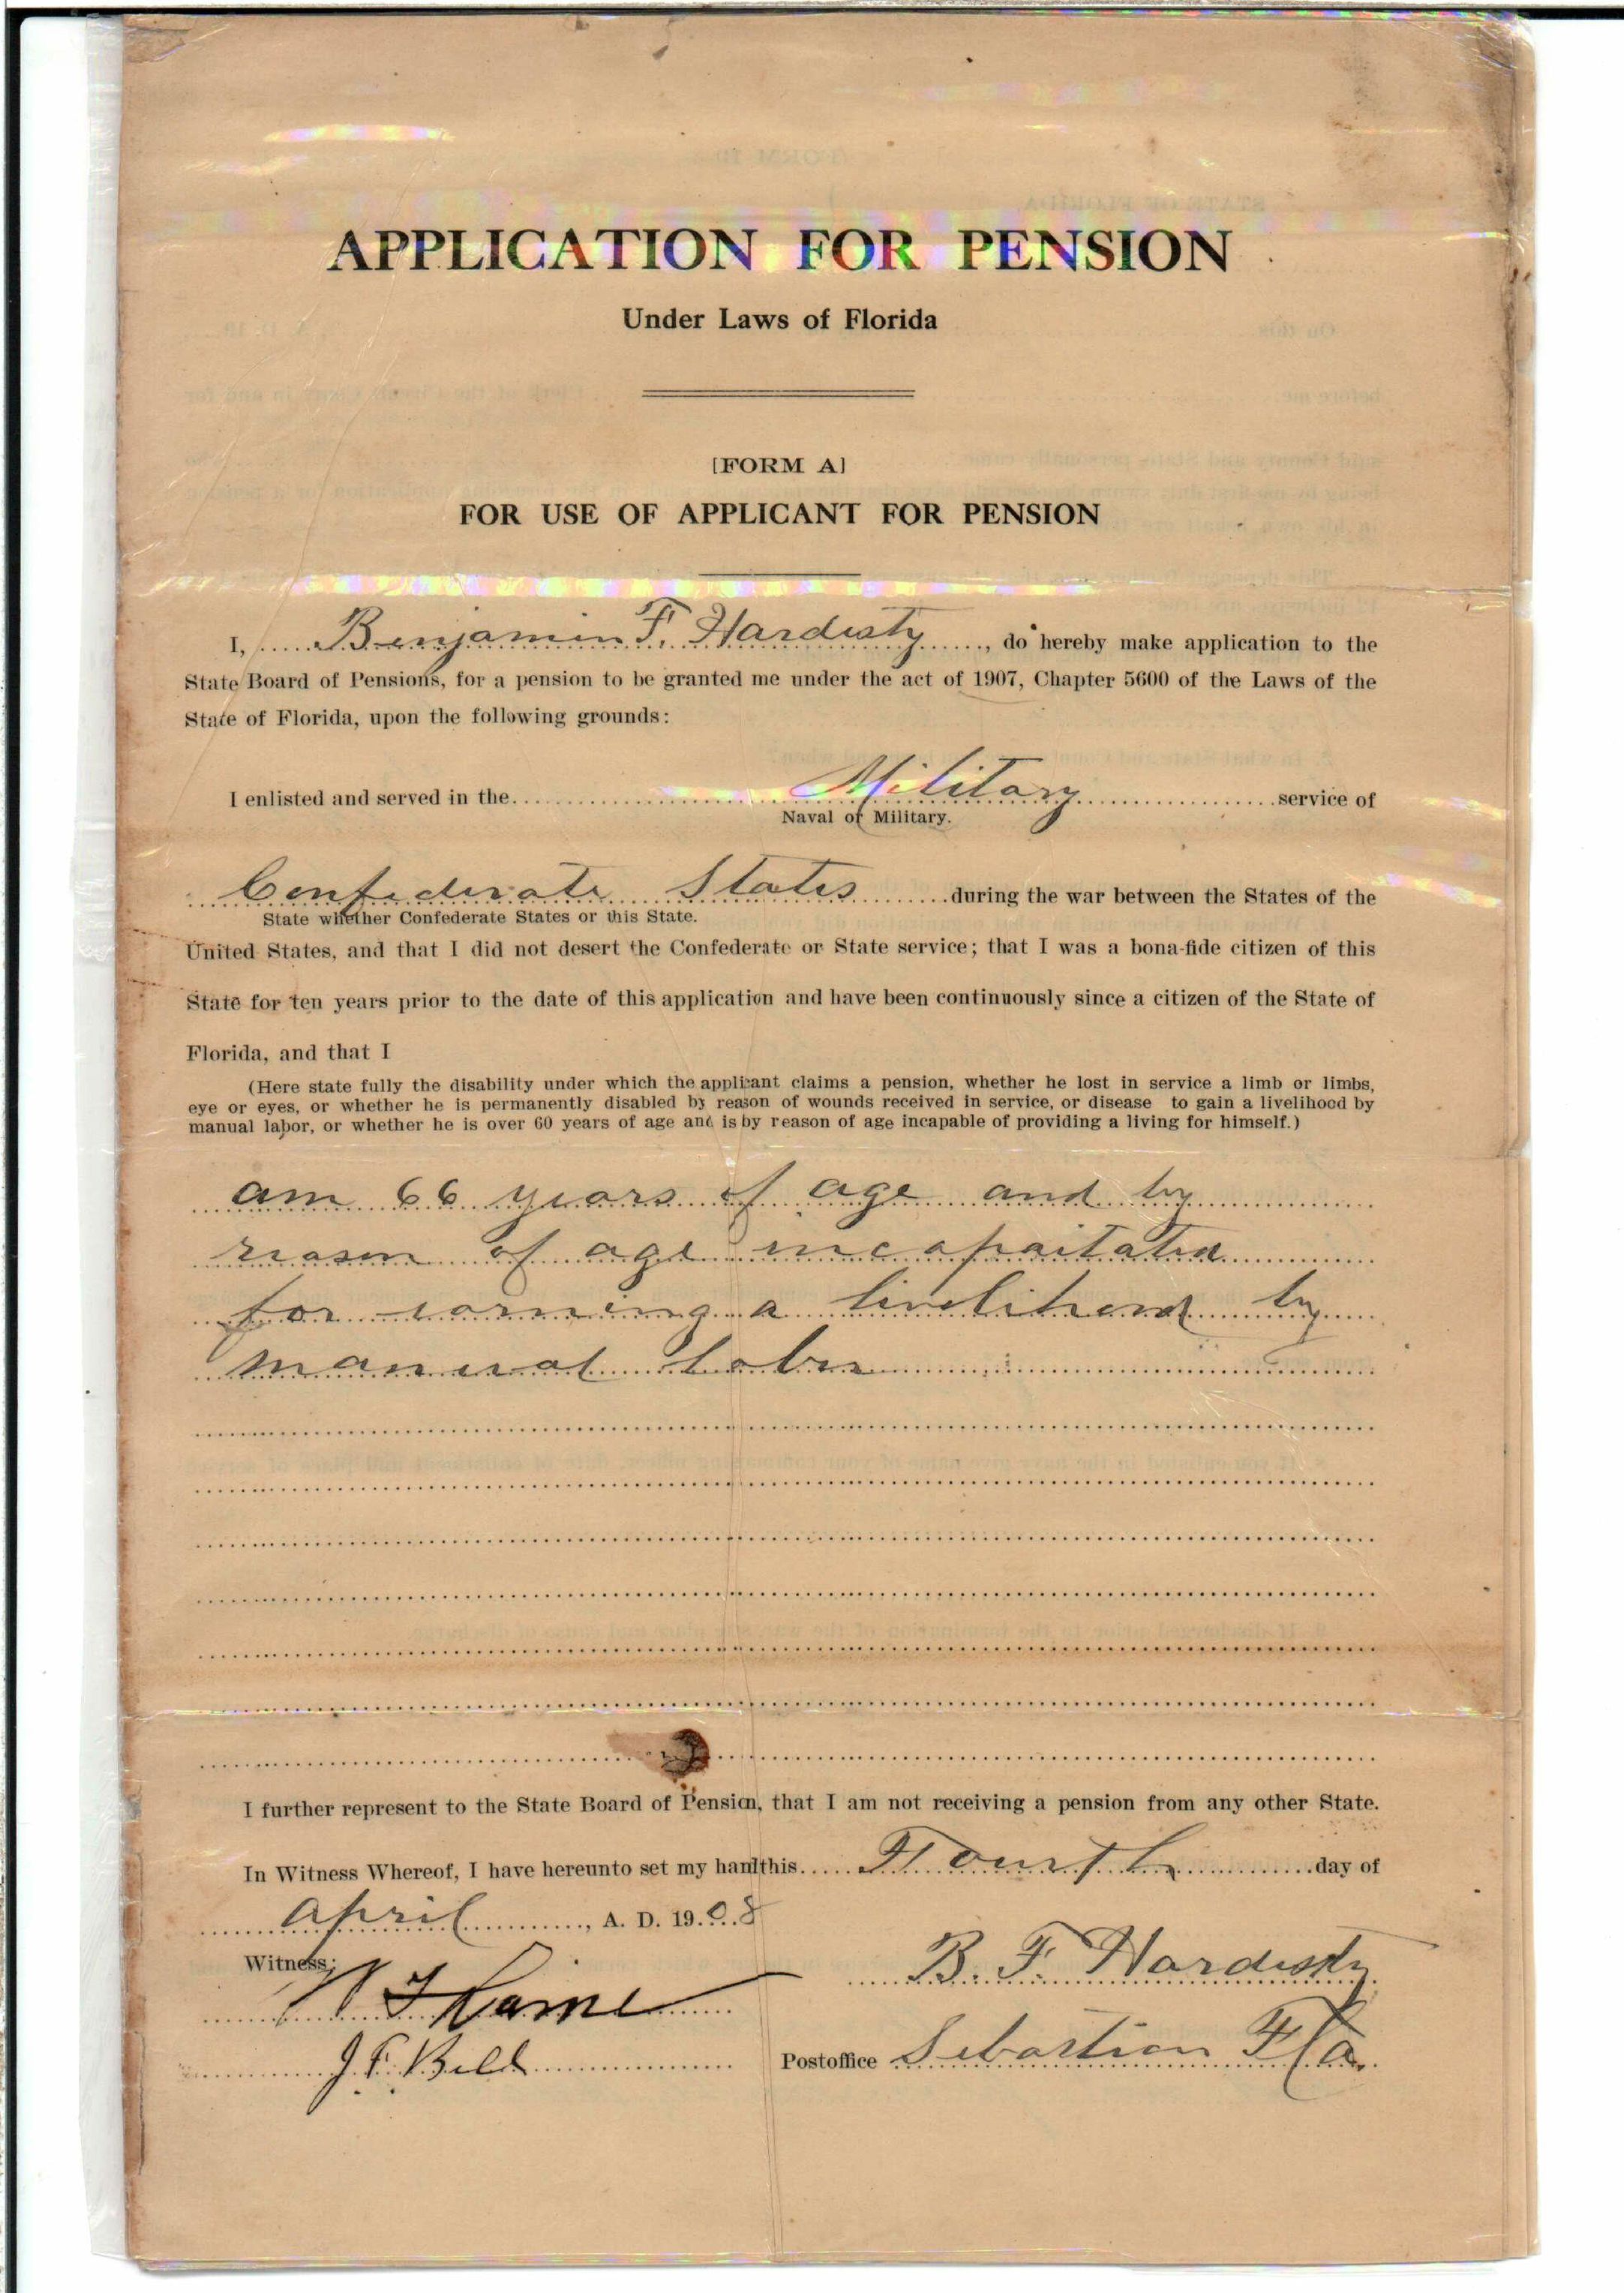 APPLICATION FOR PENSION
Under Laws of Florida
[FORM A]
FOR USE OF APPLICANT FOR PENSION
I, Benjamin F. Hardisty, do hereby make application to the
State Board of Pensions, for a pension to be granted me under the act of 1907, Chapter 5600 of the Laws of the
State of Florida, upon the following grounds:
I enlisted and served in the Military service of
Naval or Military.
Confederate States during the war between the States of the
State whether Confederate States or this State.
United States, and that I did not desert the Confederate or State service; that I was a bona-fide citizen of this
State for ten years prior to the date of this application and have been continuously since a citizen of the State of
Florida, and that I
(Here state fully the disability under which the applicant claims a pension, whether he lost in service a limb or limbs,
eye or eyes, or whether he is permanently disabled by reason of wounds received in service, or disease to gain a livelihood by
manual labor, or whether he is over 60 years of age and is by reason of age incapable of providing a living for himself.)
am 66 years of age and by
reason of age incapaitated
for earning a livelihood by
manual labor
I further represent to the State Board of Pension, that I am not receiving a pension from any other State.
In Witness Whereof, I have hereunto set my hand this Fourth day of
April, A. D. 1908
Witness:
B. F. Hardisty
J. F. Bell
Postoffice Sebastian Fla.